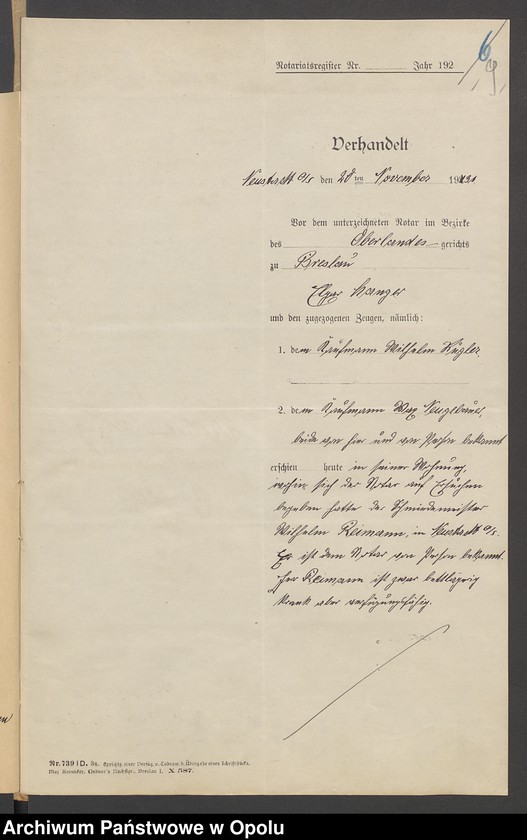 6
9
Notariatsregister Nr. Jahr 192
Verhandelt
Neustadt O/S den 28ten November 1921
Vor dem unterzeichneten Notar im Bezirke
des Oberlandes-gerichts
zu Breslau
Kanzer
und den zugezogenen Zeugen, nämlich:
1. dem Kaufmann Wilhelm Kugler
2. dem Kaufmann Max Neugebauer,
beide von hier und von Person bekannt
erschien heute in seiner Wohnung,
wohin sich der Notar auf Ersuchen
begeben hatte der Schmiedemeister
Wilhelm Reimann, in Neustadt O/S.
Er ist dem Notar von Person bekannt.
Herr Reimann ist zwar bettlägrig
krank aber verfügungsfähig.
Nr. 739 I D.
Max Breslau I. X 587.
Archiwum Państwowe w Opolu